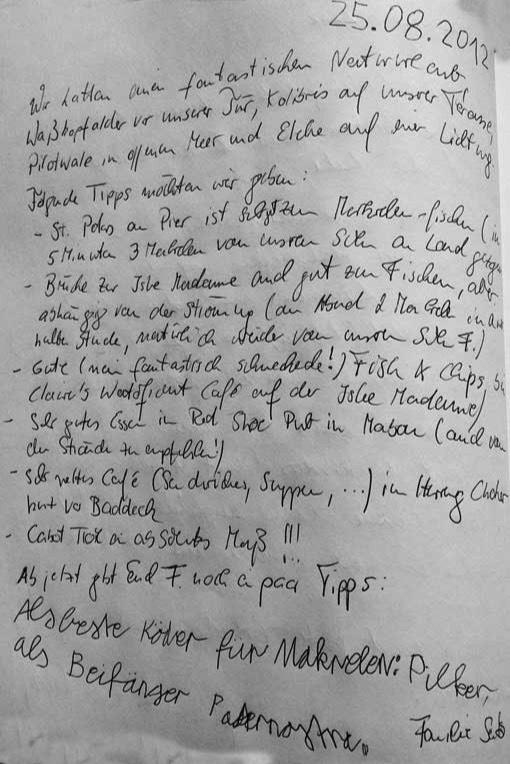 25.08.2012
Wir hatten einen fantastischen Natururlaub
vor unserer Tür, Kolibris auf unserer Terasse,
Pilotwale im offenen Meer und Elche auf einer Lichtung.
Folgende Tipps möchten wir geben:
- St. Peters am Pier ist zum Makrelen-fischen (in
5 Minuten 3 Makrelen von unserem Sohn an Land gezogen
- Brücke zur Isle Madame auch gut zum Fischen, aber
abhängig von der Strömung (am Abend 2 Makrelen in der
halbe Stunde, natürlich wieder von unserem Sohn F.)
- Gute (nein fantastisch schmeckende!) Fish & Chips bei
Claire's Woodfient Café auf der Isle Madame)
- Sehr gutes Essen in Red Shoe Pub in Mabou (auch von
den Strände zu empfehlen!)
- Sehr nettes Café (Sandwiches, Suppen, ...) im Herring Choker
kurz vor Baddeck
- Cabot Trail ein absolutes Muß !!!
Ab jetzt gibt Euch F. noch ein paar Tipps:
Als beste Köder für Makrelen: Pilker,
als Beifänger Paternoster.
Familie